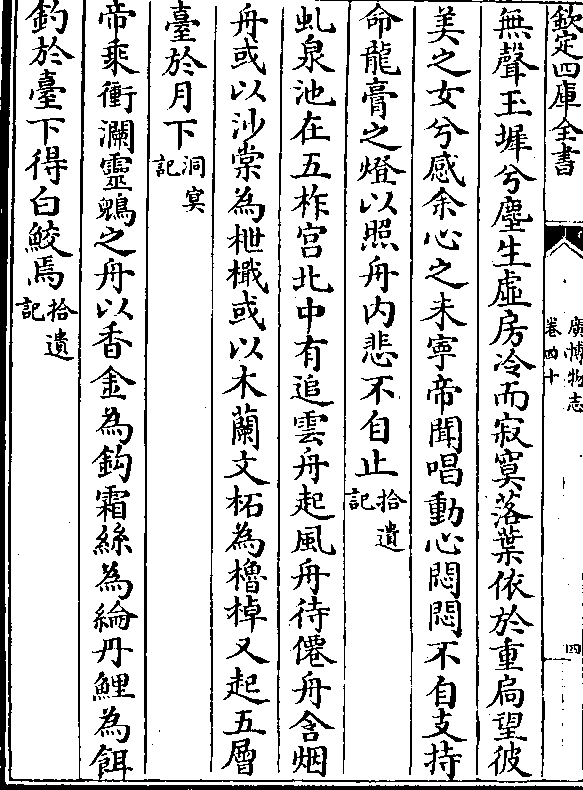 欽定四庫全書
廣博物志
卷四十
無聲玉墀兮塵生虛房冷而寂寞落葉依於重扃望彼
美之女兮感余心之未寧帝聞唱動心悶悶不自支持
命龍膏之燈以照舟内悲不自止拾遺記
虬泉池在五柞宫北中有追雲舟起風舟待僊舟含烟
舟或以沙棠為枻檝或以木蘭文柘為櫓棹又起五層
臺於月下洞冥記
帝乘衝瀾靈鷁之舟以香金為鈎霜絲為綸丹鯉為餌
釣於臺下得白鮫焉拾遺記